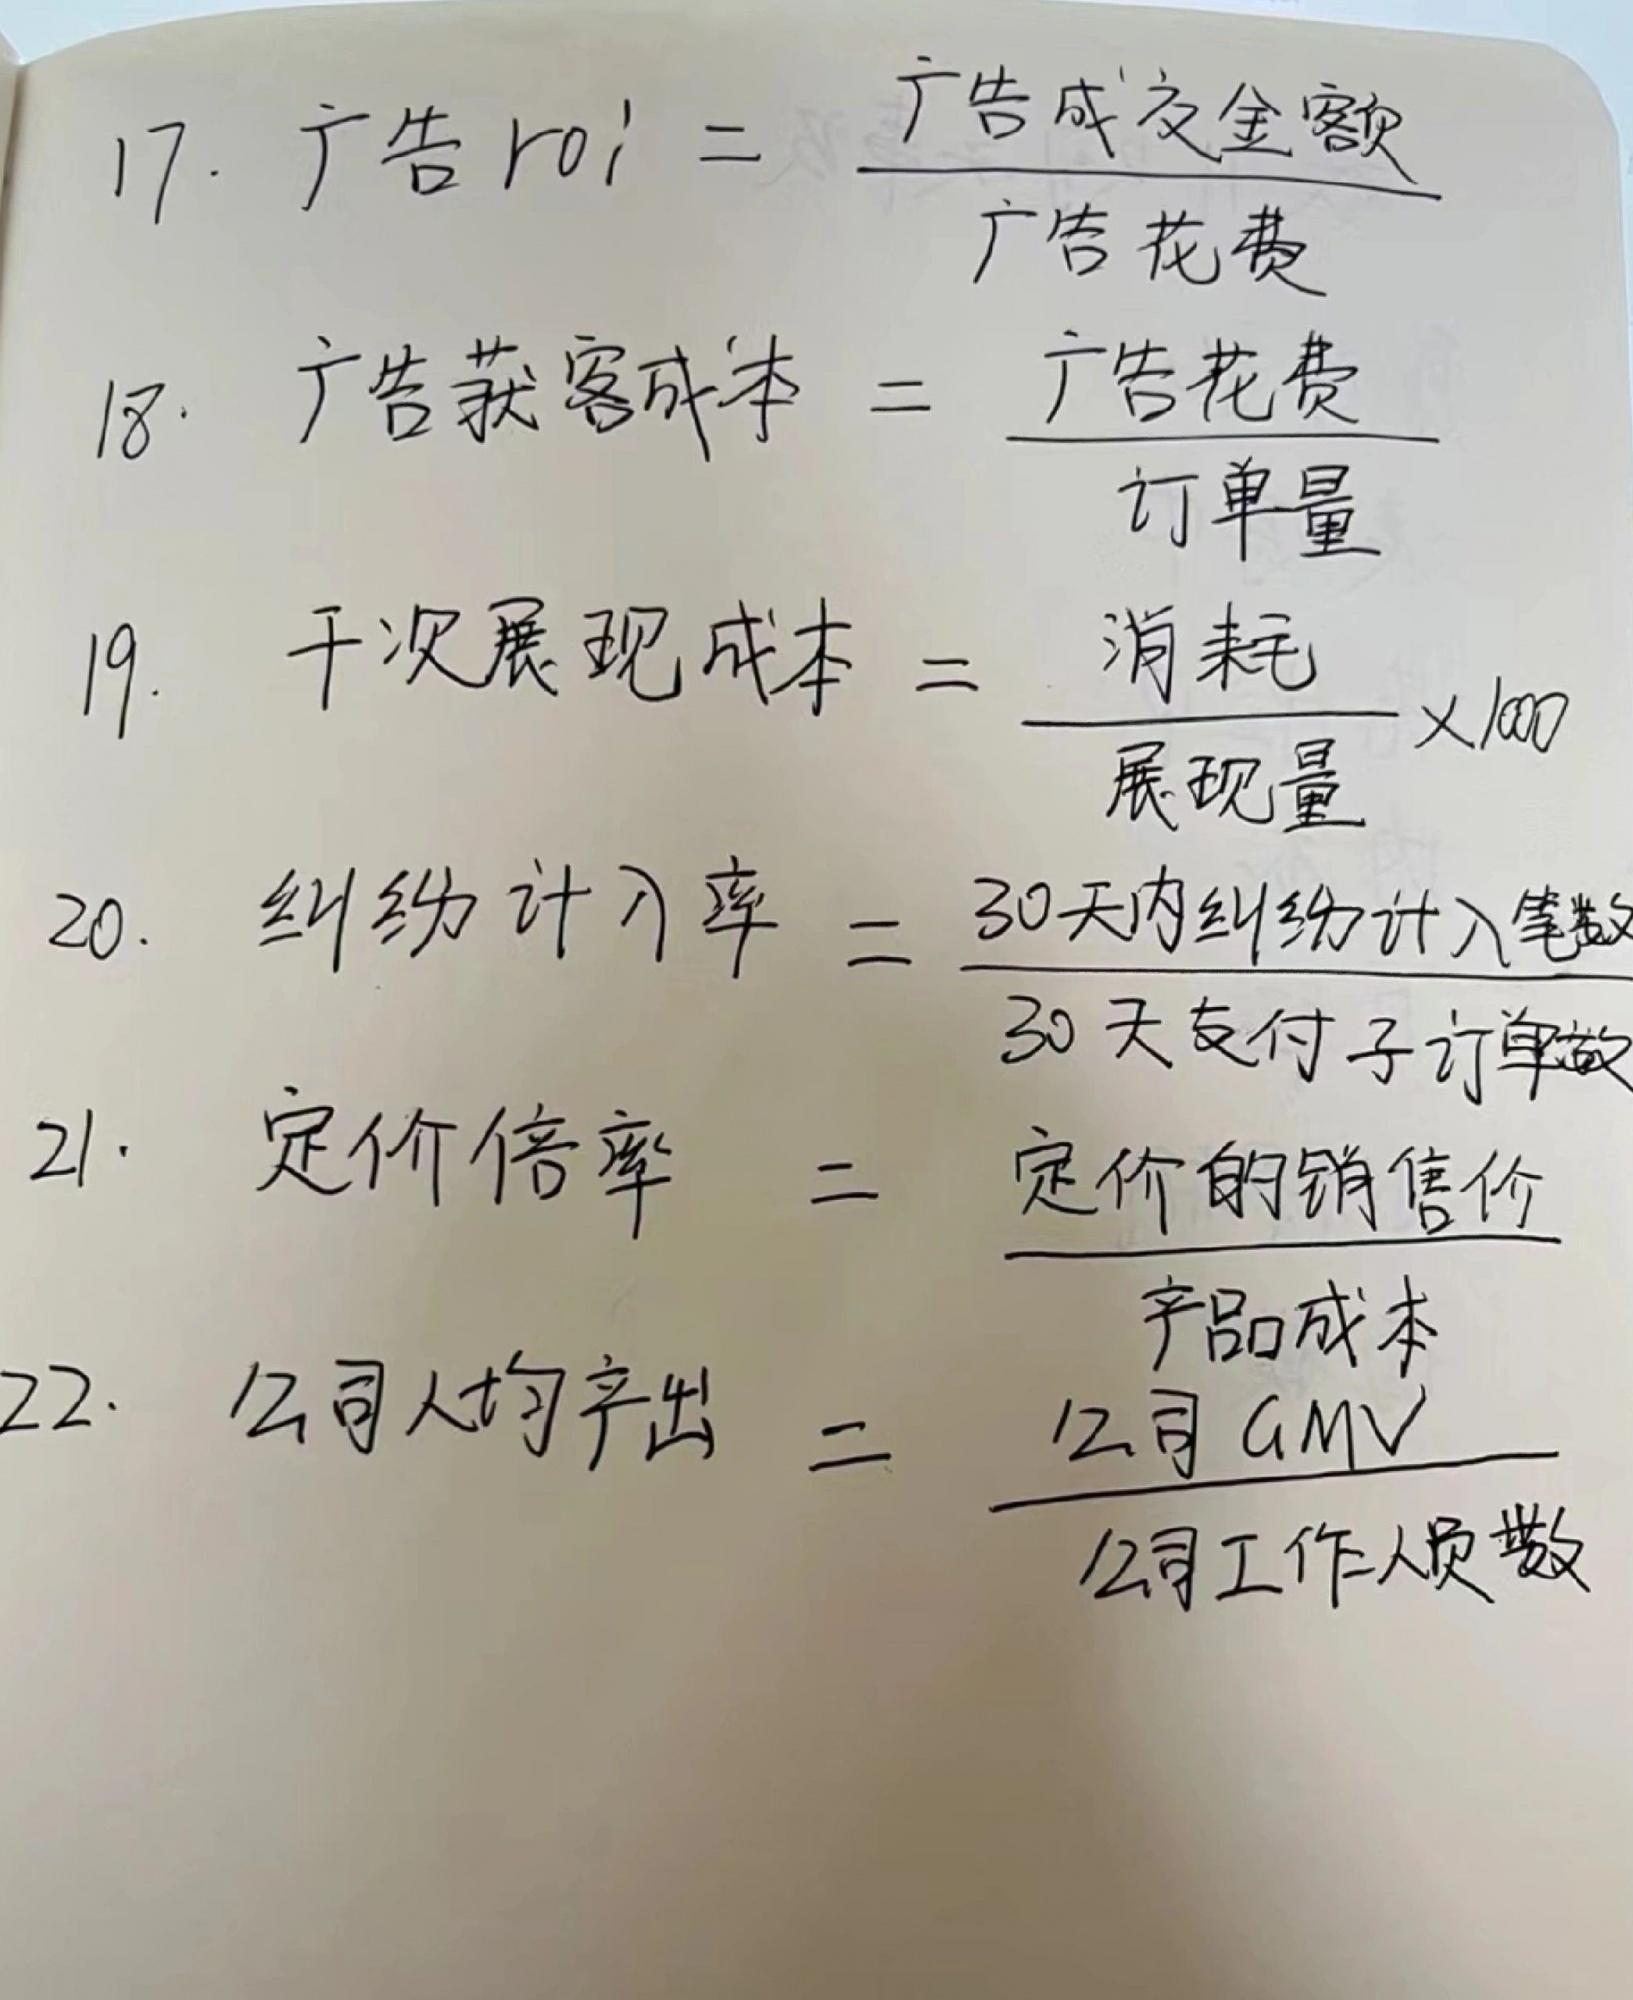 17. 广告roi = 广告成交金额
广告花费
18. 广告获客成本 = 广告花费
订单量
19. 千次展现成本 = 消耗 ×1000
展现量
20. 纠纷计入率 = 30天内纠纷计入笔数
30天支付子订单数
21. 定价倍率 = 定价的销售价
产品成本
22. 公司人均产出 = 公司GMV
公司工作人员数